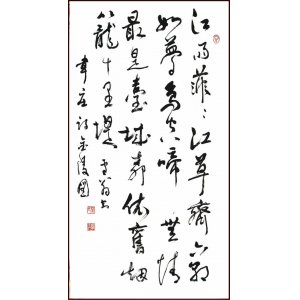 江雨霏〻江草齊六朝
如夢鳥空啼無情
最是臺城柳依舊烟
籠十里堤
韋莊詩金陵圖